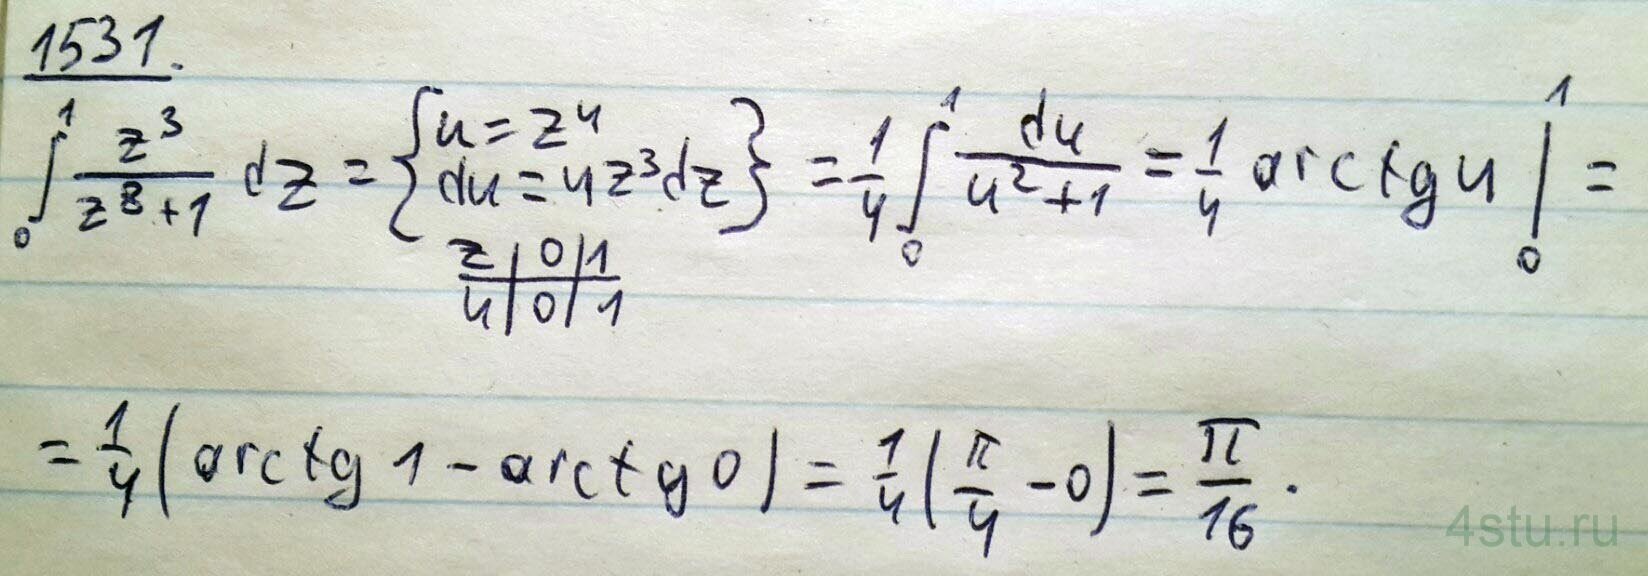 1531.
∫₀¹ z³/(z⁸+1) dz = {u = z⁴ du = 4z³dz} = 1/4 ∫₀¹ du/(u²+1) = 1/4 arctg u |₀¹ =
z | 0 | 1
u | 0 | 1
= 1/4 (arctg 1 - arctg 0) = 1/4 (π/4 - 0) = π/16.
4stu.ru